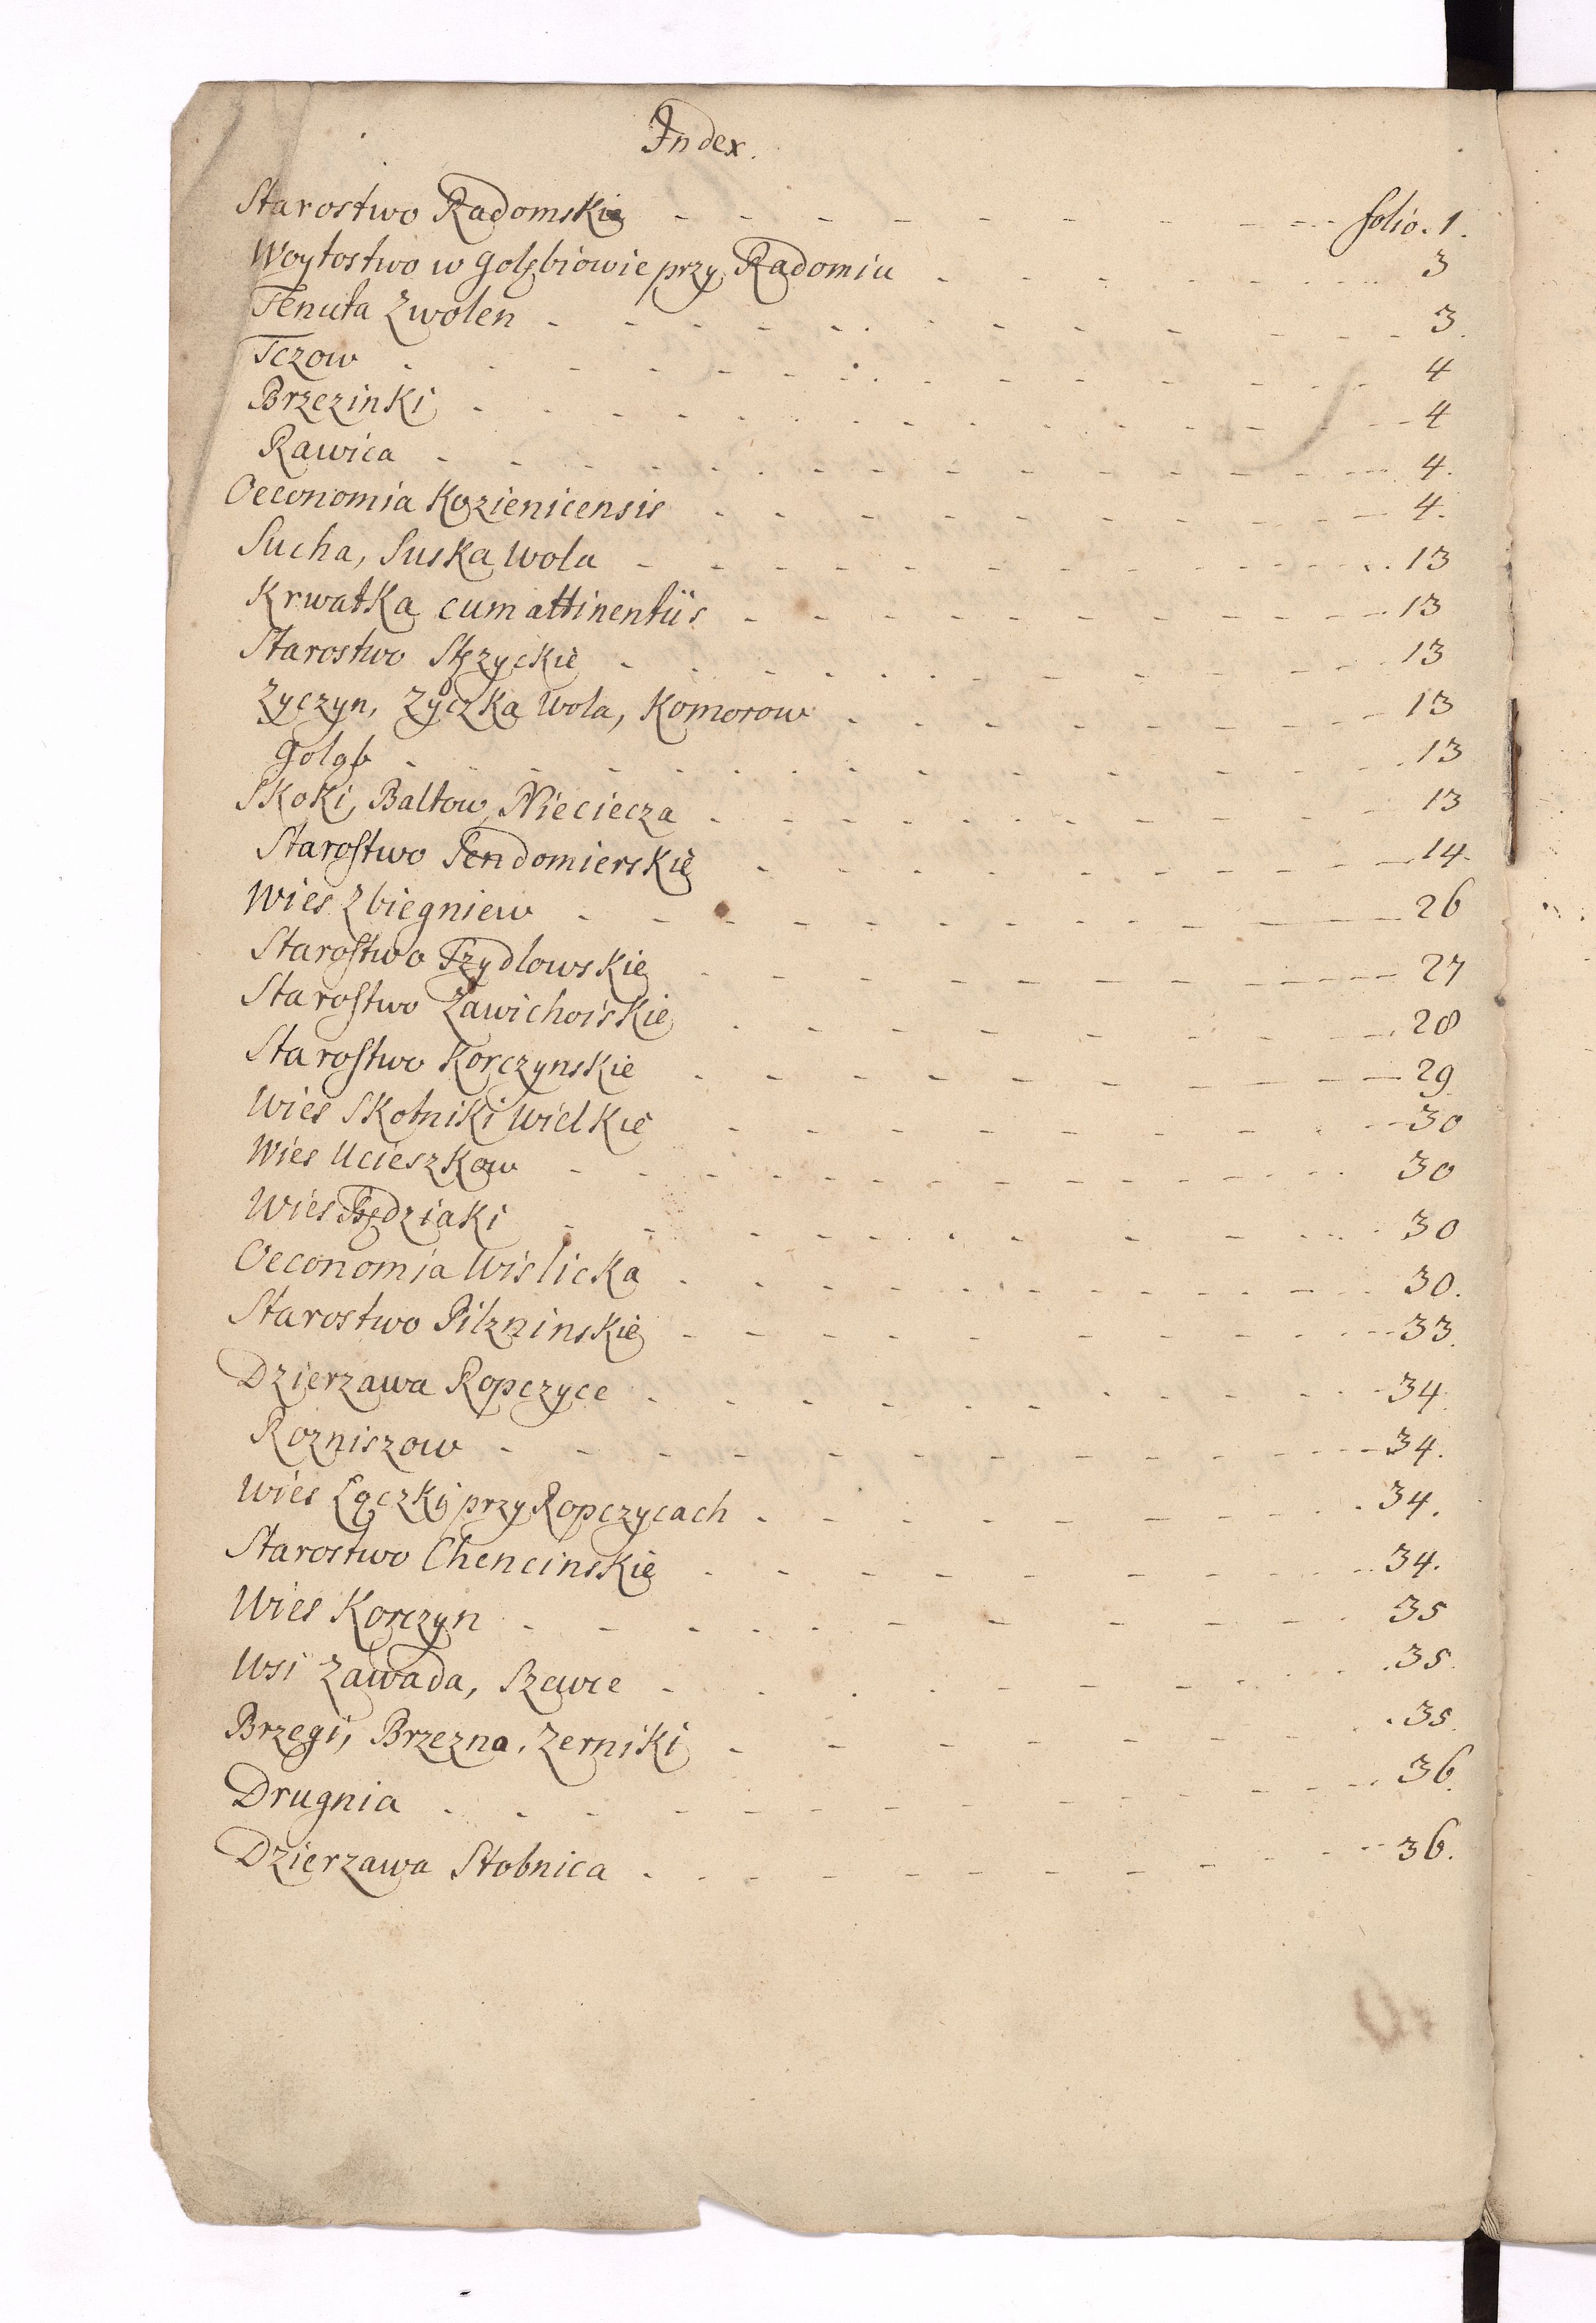 Index.
Starostwo Radomskie - - - - - - - - - folio. 1.
Woytostwo w Golębiowie przy Radomiu - - - - - - 3
Tenuta Zwolen - - - - - - - - - 3.
Tczow - - - - - - - - - 4
Brzezinki - - - - - - - - - 4
Rawica - - - - - - - - - 4.
Oeconomia Kozienicensis - - - - - - - - - 4.
Sucha, Suska Wola - - - - - - - - - 13
Krwatka cum attinentiis - - - - - - - - - 13
Starostwo Stęzyckie - - - - - - - - - 13
Zyczyn, Zyczka Wola, Komorow - - - - - - - 13
Goląb - - - - - - - - - 13
Skoki, Baltow, Nieciecza - - - - - - - - - 13
Starostwo Sendomierskie - - - - - - - - - 14.
Wies Zbiegniew - - - - - - - - - 26
Starostwo Szydlowskie - - - - - - - - - 27
Starostwo Zawichoiskie - - - - - - - - - 28
Starostwo Korczynskie - - - - - - - - - 29
Wies Skotniki Wielkie - - - - - - - - - 30
Wies Ucieszkow - - - - - - - - - 30
Wies Będziaki - - - - - - - - - 30
Oeconomia Wislicka - - - - - - - - - 30.
Starostwo Pilzninskie - - - - - - - - - 33.
Dzierzawa Ropczyce - - - - - - - - - 34.
Rozniszow - - - - - - - - - 34.
Wies Łączki przy Ropczycach - - - - - - - - 34.
Starostwo Chencinskie - - - - - - - - - 34.
Wies Korczyn - - - - - - - - - 35
Wsi Zawada, Szewce - - - - - - - - - 35.
Brzegi, Brzezna, Zerniki - - - - - - - - - 35.
Drugnia - - - - - - - - - 36.
Dzierzawa Stobnica - - - - - - - - - 36.